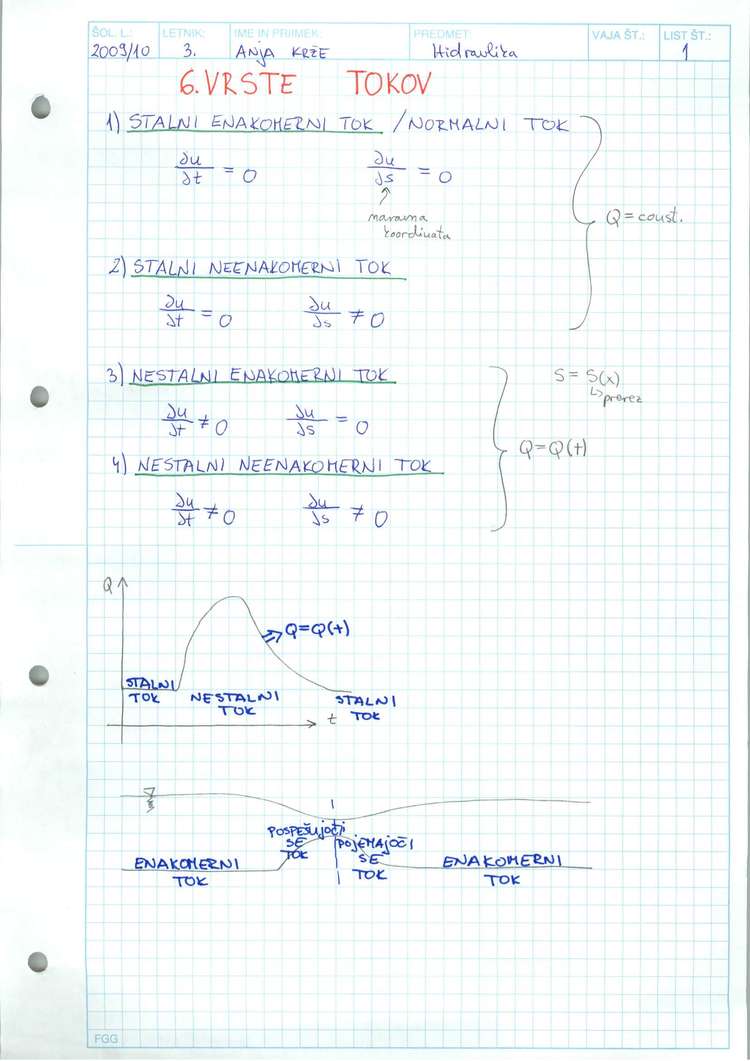 ŠOL. L.: LETNIK: IME IN PRIIMEK: PREDMET: VAJA ŠT.: LIST ŠT.:
2009/10 3. ANJA KRŽE Hidravlika 1
6. VRSTE TOKOV
1) STALNI ENAKOMERNI TOK / NORMALNI TOK
∂u/∂t = 0 ∂u/∂s = 0
naravna
koordinata
Q = const.
2) STALNI NEENAKOMERNI TOK
∂u/∂t = 0 ∂u/∂s ≠ 0
3) NESTALNI ENAKOMERNI TOK
S = S(x)
↳ prerez
∂u/∂t ≠ 0 ∂u/∂s = 0
Q = Q(t)
4) NESTALNI NEENAKOMERNI TOK
∂u/∂t ≠ 0 ∂u/∂s ≠ 0
Q
⇒ Q=Q(t)
STALNI
TOK
NESTALNI
TOK
STALNI
TOK
t
POSPEŠUJOČI
SE
TOK
POJEMAJOČI
SE
TOK
ENAKOMERNI
TOK
ENAKOMERNI
TOK
FGG